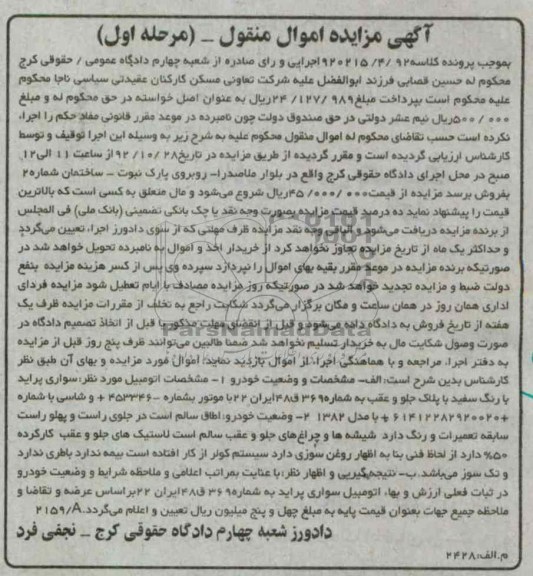 آگهی مزایده اموال منقول _ (مرحله اول)
بموجب پرونده کلاسه ۹۲ /۴/ ۹۲۰۲۱۵اجرایی و رای صادره از شعبه چهارم دادگاه عمومی / حقوقی کرج
محکوم له حسین قصابی فرزند ابوالفضل علیه شرکت تعاونی مسکن کارکنان عقیدتی سیاسی ناجا محکوم
علیه محکوم است بپرداخت مبلغ ۹۸۹ /۱۲۷/ ۲۴ریال به عنوان اصل خواسته در حق محکوم له و مبلغ
۰۰۰ /۵۰۰ریال نیم عشر دولتی در حق صندوق دولت چون نامبرده در موعد مقرر قانونی مفاد حکم را اجرا،
نکرده است حسب تقاضای محکوم له اموال منقول محکوم علیه به شرح زیر به وسیله این اجرا توقیف و توسط
کارشناس ارزیابی گردیده است و مقرر گردیده از طریق مزایده در تاریخ ۲۸/ ۱۰/ ۹۲ از ساعت ۱۱ الی ۱۲
صبح در محل اجرای دادگاه حقوقی کرج واقع در بلوار ملاصدرا- روبروی پارک نبوت - ساختمان شماره۲
بفروش برسد مزایده از قیمت ۰۰۰ /۰۰۰/ ۴۵ریال شروع می‌شود و مال متعلق به کسی است که بالاترین
قیمت را پیشنهاد نماید ده درصد قیمت مزایده بصورت وجه نقد یا چک بانکی تضمینی (بانک ملی) فی المجلس
از برنده مزایده دریافت می‌شود و الباقی وجه نقد مزایده ظرف مهلتی که از سوی دادورز اجرا، تعیین می‌گردد
و حداکثر یک ماه از تاریخ مزایده تجاوز نخواهد کرد از خریدار اخذ و اموال به نامبرده تحویل خواهد شد در
صورتیکه برنده مزایده در موعد مقرر بقیه بهای اموال را نپردازد سپرده وی پس از کسر هزینه مزایده بنفع
دولت ضبط و مزایده تجدید خواهد شد در صورتیکه روز مزایده مصادف با ایام تعطیل شود مزایده فردای
اداری همان روز در همان ساعت و مکان برگزار می‌گردد شکایت راجع به تخلف از مقررات مزایده ظرف یک
هفته از تاریخ فروش به دادگاه داده می‌شود و قبل از انقضای مهلت مذکور یا قبل از اتخاذ تصمیم دادگاه در
صورت وصول شکایت مال به خریدار تسلیم نخواهد شد ضمنا طالبین می‌توانند ظرف پنج روز قبل از مزایده
به دفتر اجرا، مراجعه و با هماهنگی اجرا، از اموال بازدید نمایند. اموال مورد مزایده و بهای آن طبق نظر
کارشناس بدین شرح است: الف- مشخصات و وضعیت خودرو ۱- مشخصات اتومبیل مورد نظر: سواری پراید
با رنگ سفید با پلاک جلو و عقب به شماره ۳۶۹ق۴۸ایران ۲۲ با موتور بشماره ۴۵۳۳۴۶- + و شاسی با شماره
+۶۱۴۱۲۲۸۲۹۲۰۰۲۰+ با مدل ۱۳۸۲ ۲- وضعیت خودرو: اطاق سالم است در جلوی راست و پهلو راست
سابقه تعمیرات و رنگ دارد شیشه ها و چراغ‌های جلو و عقب سالم است لاستیک های جلو و عقب کارکرده
۵۰% دارد از لحاظ فنی بنا به اظهار روغن سوزی دارد سیستم کولر از کار افتاده است بیمه ندارد باطری ندارد
و تک سوز می‌باشد. ب- نتیجه‌گیری و اظهار نظر: با عنایت بمراتب اعلامی و ملاحظه شرایط و وضعیت خودرو
در ثبات فعلی ارزش و بهاء اتومبیل سواری پراید به شماره ۳۶۹ ق۴۸ ایران ۲۲ براساس عرضه و تقاضا و
ملاحظه جمیع جهات بعنوان قیمت پایه به مبلغ چهل و پنج میلیون ریال تعیین و اعلام می‌گردد. ۲۱۵۹/A
دادورز شعبه چهارم دادگاه حقوقی کرج _ نجفی فرد
م.الف:۲۴۲۸